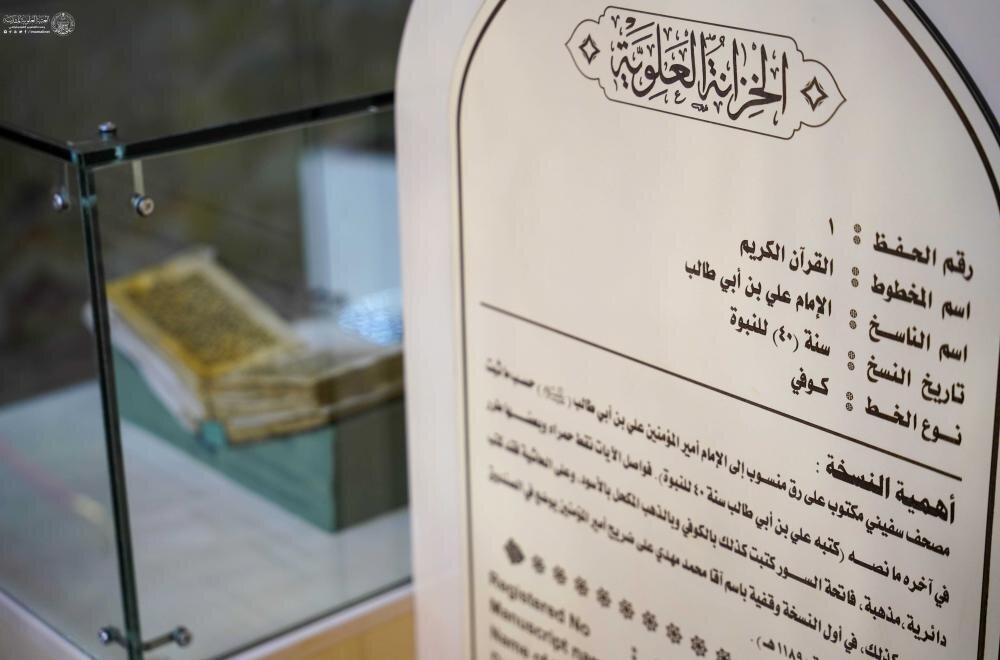 العتبة العلوية المقدسة
الخزانة العلوية
رقم الحفظ : ١
اسم المخطوط : القرآن الكريم
اسم الناسخ : الإمام علي بن أبي طالب
تاريخ النسخ : سنة (٤٠) للنبوة
نوع الخط : كوفي
أهمية النسخة :
مصحف سفيني مكتوب على رق منسوب إلى الإمام أمير المؤمنين علي بن أبي طالب حسب ما ثبت
في آخره ما نصه (كتبه علي بن أبي طالب سنة ٤٠ للنبوة). فواصل الآيات نقط حمراء وبعضها
دائرية، مذهبة، فاتحة السور كتبت كذلك بالكوفي وبالذهب المكحل بالأسود. وعلى الحاشية
كذلك، في أول النسخة وقفية باسم آقا محمد مهدي على ضريح أمير المؤمنين يوضع في الصندوق
١١٨٩هـ).
Registered No
Manuscript name
Name of